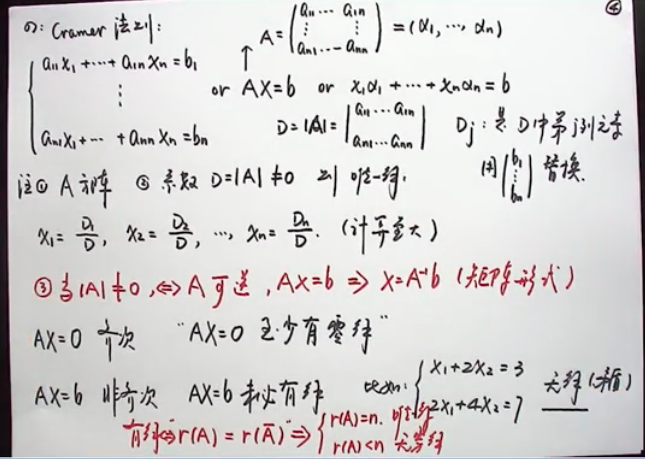 ④
(7): Cramer 法则:
A = \begin{pmatrix} a_{11} & \cdots & a_{1n} \\ \vdots & & \vdots \\ a_{n1} & \cdots & a_{nn} \end{pmatrix} = (α_1, ⋯, α_n)
\begin{cases} a_{11}x_1 + ⋯ + a_{1n}x_n = b_1 \\ \vdots \\ a_{n1}x_1 + ⋯ + a_{nn}x_n = b_n \end{cases} ↑ or AX=b or x_1α_1 + ⋯ + x_nα_n = b
D=|A|= \begin{vmatrix} a_{11} ⋯ a_{1n} \\ a_{n1} ⋯ a_{nn} \end{vmatrix} D_j: 是 D中第j列元素
用 \begin{pmatrix} b_1 \\ \vdots \\ b_n \end{pmatrix} 替换.
注① A 方阵 ② 系数 D=|A|≠0 则 唯一解.
x_1 = \frac{D_1}{D}, x_2 = \frac{D_2}{D}, ⋯, x_n = \frac{D_n}{D}. (计算量大)
③ 当|A|≠0, ⇔ A 可逆, AX=b ⇒ X=A^{-1}b (矩阵形式)
AX=0 齐次 "AX=0 至少有零解"
AX=b 非齐次 AX=b 未必有解 比如: \begin{cases} x_1+2x_2=3 \\ 2x_1+4x_2=7 \end{cases} 无解 (矛盾)
有解⇔"r(A) = r(\bar{A})" ⇒ \begin{cases} r(A)=n. 唯一解 \\ r(A)<n 无穷解 \end{cases}